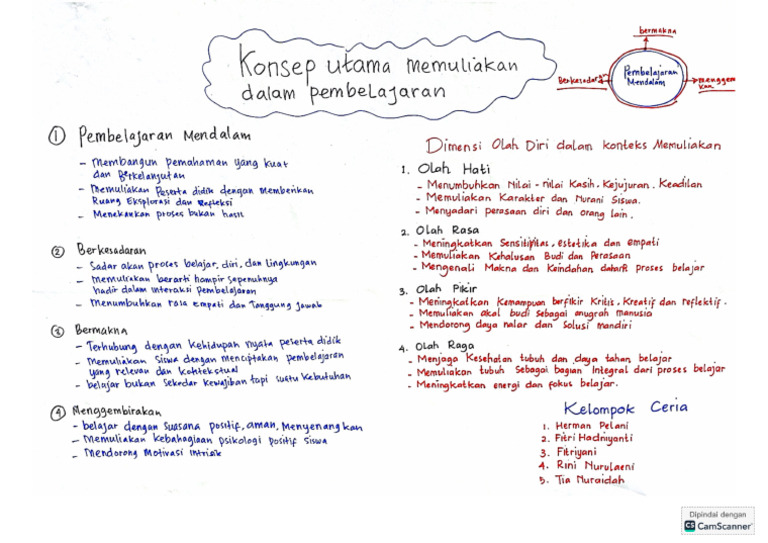 Konsep utama memuliakan
dalam pembelajaran
bermakna
Berkesadaran
Pembelajaran
Mendalam
menggem
kan
① Pembelajaran Mendalam
- Membangun pemahaman yang kuat
dan Berkelanjutan
- Memuliakan Peserta didik dengan memberikan
Ruang Eksplorasi dan Refleksi
- Menekankan proses bukan hasil
② Berkesadaran
- Sadar akan proses belajar, diri, dan Lingkungan
- memuliakan berarti hampir sepenuhnya
hadir dalam interaksi pembelajaran
- menumbuhkan rasa empati dan Tanggung jawab
③ Bermakna
- Terhubung dengan kehidupan nyata peserta didik
- Memuliakan Siswa dengan menciptakan pembelajaran
yang relevan dan kontekstual
- belajar bukan Sekedar kewajiban tapi suatu kebutuhan
④ Menggembirakan
- belajar dengan suasana positif, aman, Menyenangkan
- Memuliakan kebahagiaan psikologi positif siswa
- Mendorong Motivasi intrisik
Dimensi Olah Diri dalam konteks Memuliakan
1. Olah Hati
- Menumbuhkan Nilai - nilai Kasih, Kejujuran, Keadilan
- Memuliakan Karakter dan Nurani Siswa.
- Menyadari perasaan diri dan orang lain.
2. Olah Rasa
- Meningkatkan Sensitifitas, estetika dan empati
- Memuliakan Kehalusan Budi dan Perasaan
- Mengenali Makna dan Keindahan proses belajar
3. Olah Pikir
- Meningkatkan Kemampuan berfikir Kritis, Kreatif dan reflektif.
- Memuliakan akal budi sebagai anugrah manusia
- Mendorong daya nalar dan Solusi mandiri
4. Olah Raga
- Menjaga Kesehatan tubuh dan daya tahan belajar
- Memuliakan tubuh Sebagai bagian Integral dari proses belajar
- Meningkatkan energi dan fokus belajar.
Kelompok Ceria
1. Herman Pelani
2. Fitri Hadniyanti
3. Fitriyani
4. Rini Nurulaeni
5. Tia Nuraidah
Dipindai dengan
CS CamScanner